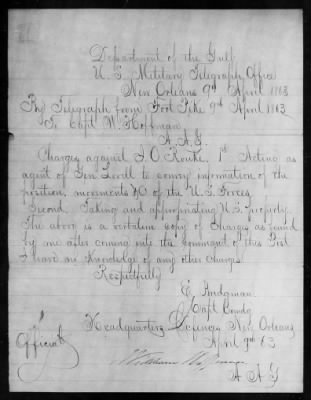 Department of the Gulf
U.S. Military Telegraph Office
New Orleans 9th April 1863
By Telegraph from Fort Pike 9th April 1863
To Capt W. Hoffman
A.A.G.
Charges against J. O. Rourke, 1st Acting as
agent of Gen Lovell to convey information of the
position, movements &c of the U.S. Forces.
Second. Taking and appropriating U.S. property.
The above is a verbatim copy of charges as found
by me after coming into the command of this Post
I have no knowledge of any other charges.
Respectfully
E. Bridgman
Capt Comdg
Headquarters Defenses New Orleans
April 9th 63
Official
A A G